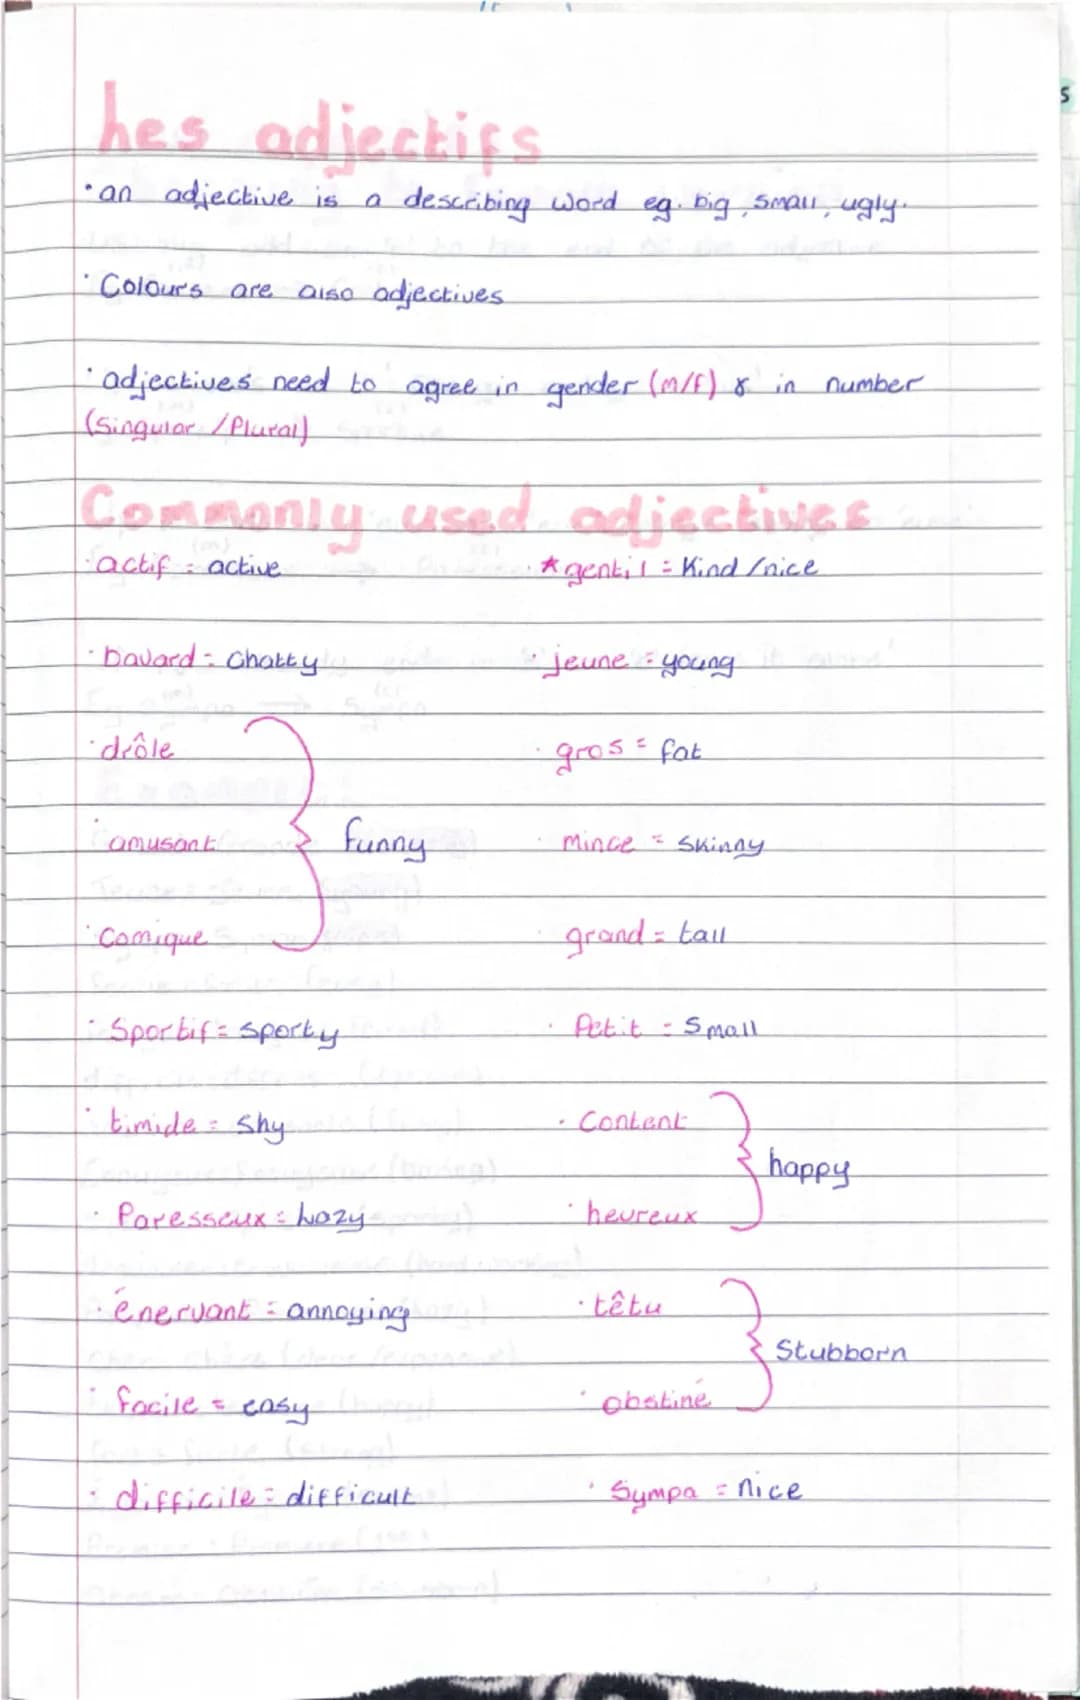 Les adjectifs
· an adjective is a describing word eg. big, small, ugly.
· Colours are also adjectives
· adjectives need to agree in gender (m/f) & in number
(Singular / Plural)
Commonly used adjectives
· actif = active
· bavard = Chatty
· drôle
· amusant
· Comique
funny
· Sportif = sporty
· timide = shy
· Paresseux = Lazy
· énervant = annoying
· facile = easy
· difficile = difficult
· * gentil = Kind / nice
· jeune = young
· gros = fat
· mince = skinny
· grand = tall
· Petit = Small
· Content
· heureux
happy
· têtu
· obstiné
Stubborn
· Sympa = nice
s